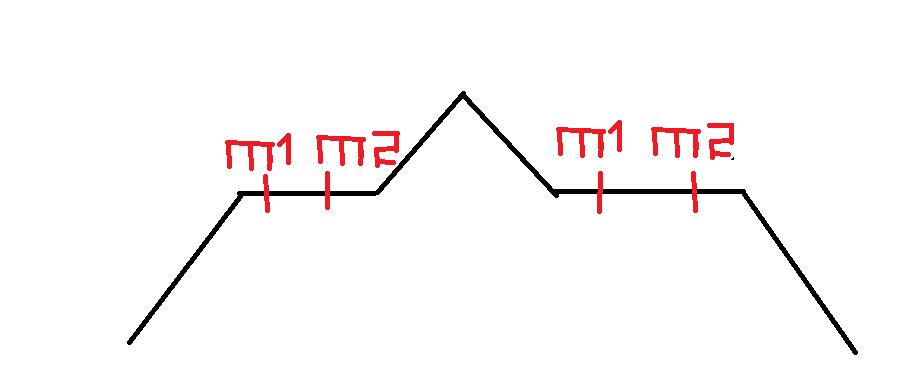 m1 m2 m1 m2